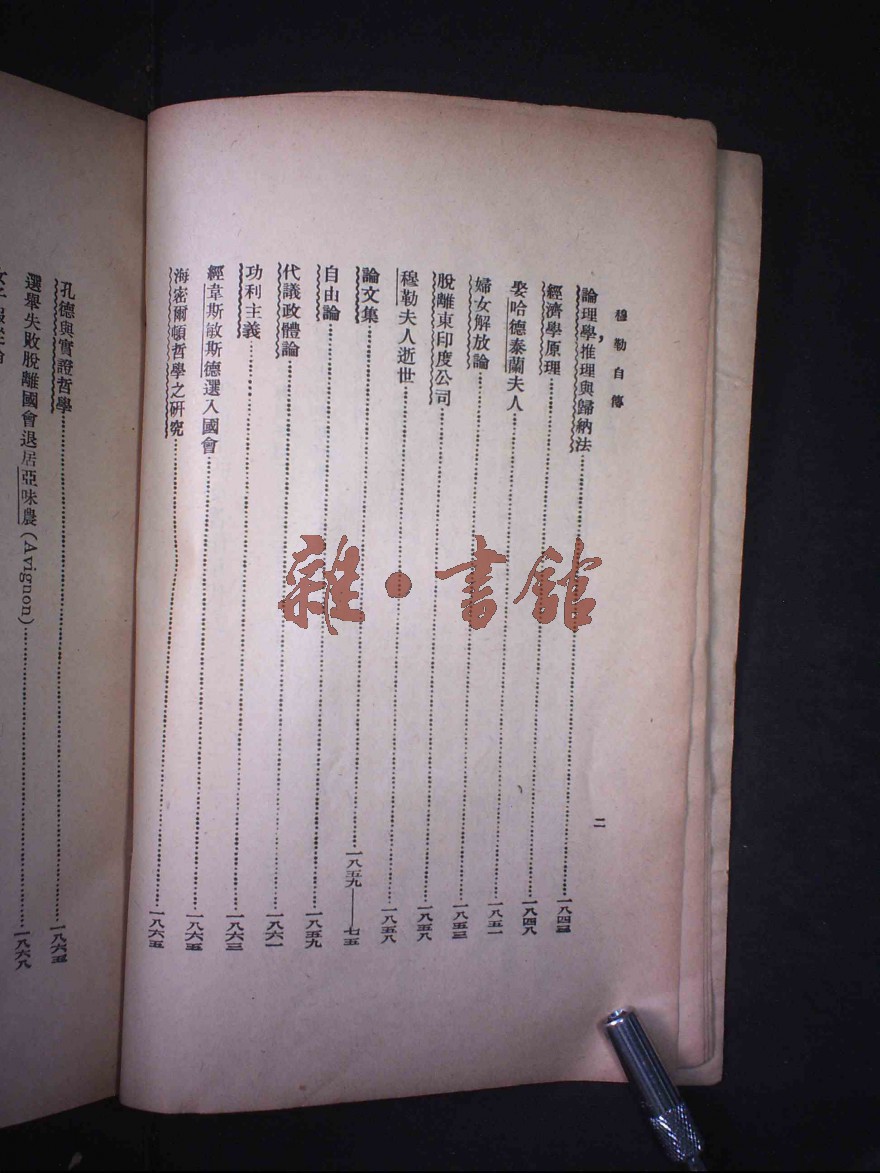 穆勒自傳
二
論理學，推理與歸納法……一八四三
經濟學原理……一八四八
娶哈德泰蘭夫人……一八五一
婦女解放論……一八五三
脫離東印度公司……一八五八
穆勒夫人逝世……一八五八
論文集……一八五九——七五
自由論……一八五九
代議政體論……一八六一
功利主義……一八六三
經韋斯敏斯德選入國會……一八六五
海密爾頓哲學之研究……一八六五
孔德與實證哲學……一八六五
選舉失敗脫離國會退居亞味農(Avignon)……一八六八
雜·書館